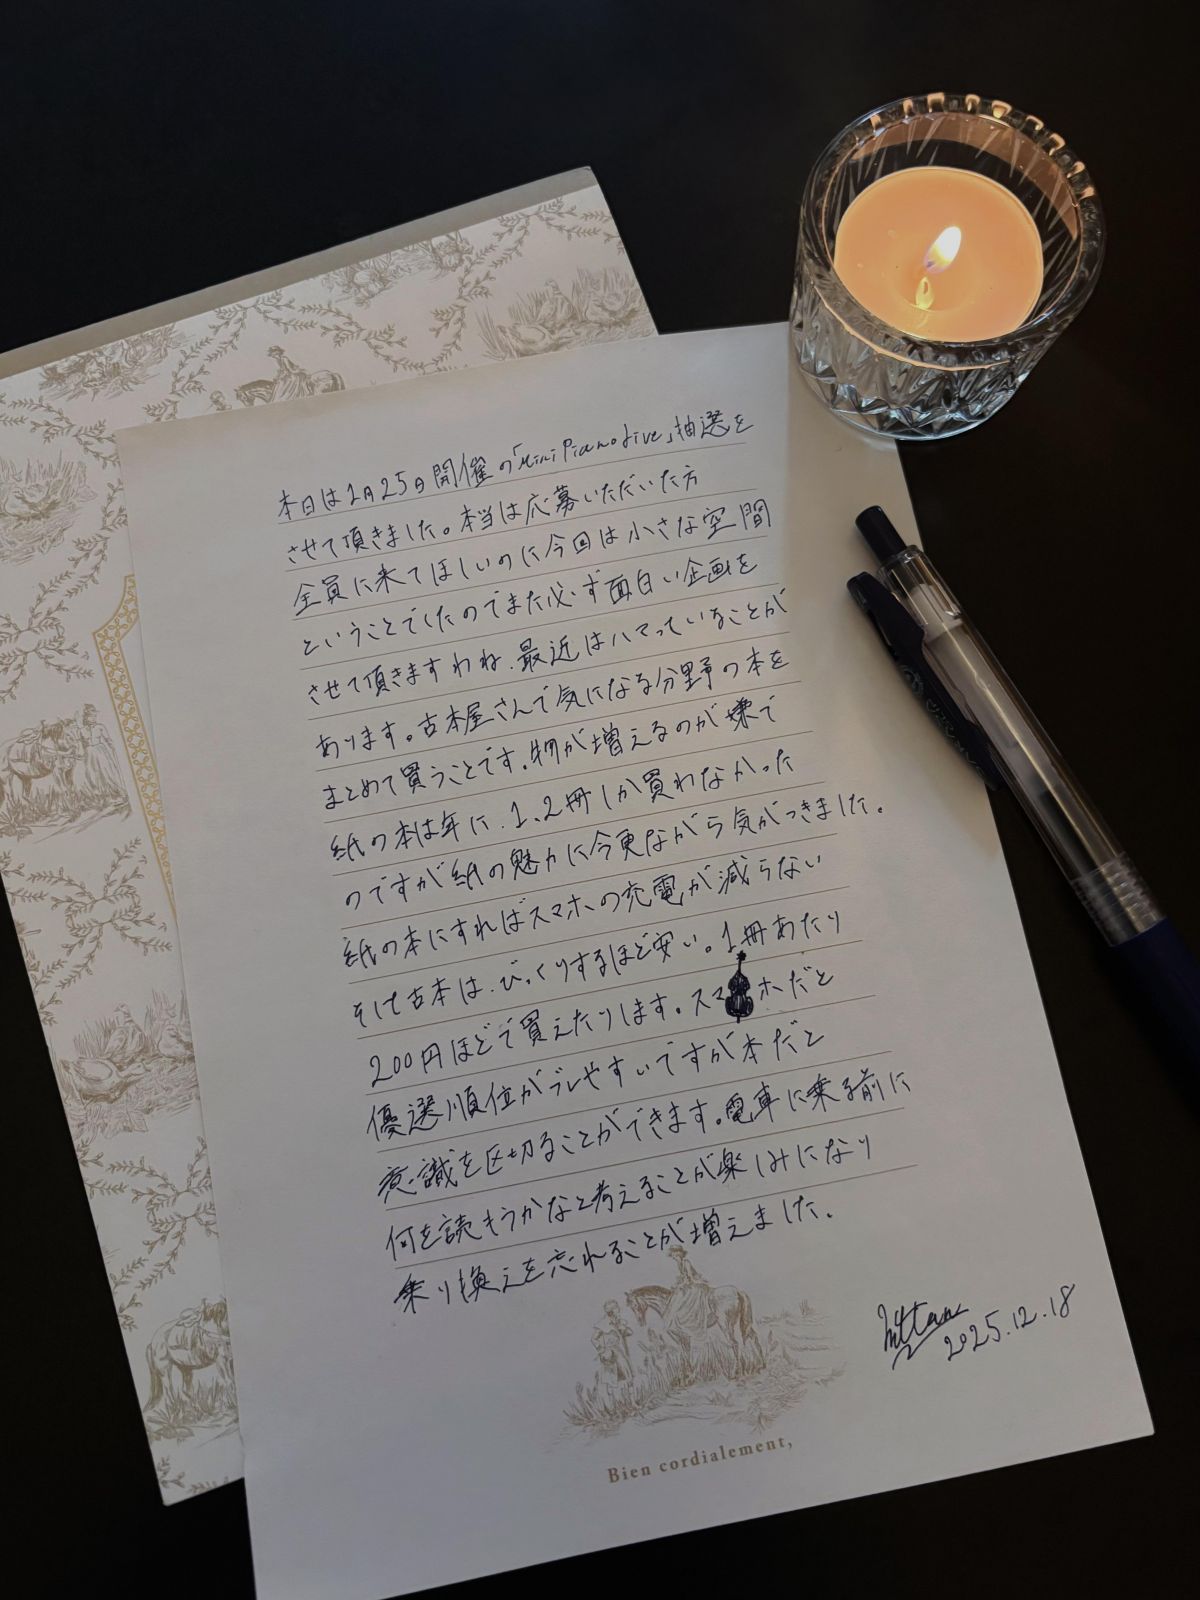 本日は1月25日開催の「Mini Piano Live」抽選を
させて頂きました。本当は応募いただいた方
全員に来てほしいのに今回は小さな空間
ということでしたのでまた必ず面白い企画を
させて頂きますわね、最近はハマっていることが
あります。古本屋さんで気になる分野の本を
まとめて買うことです。物が増えるのが嫌で
紙の本は年に、1、2冊しか買わなかった
のですが紙の魅力に今更ながら気がつきました。
紙の本にすればスマホの充電が減らない
そして古本は、びっくりするほど安い。1冊あたり
200円ほどで買えたりします。スマホだと
優選順位がブレやすいですが本だと
意識を区切ることができます。電車に乗る前に
何を読もうかなと考えることが楽しみになり
乗り換えを忘れることが増えました。
2025.12.18
Bien cordialement,